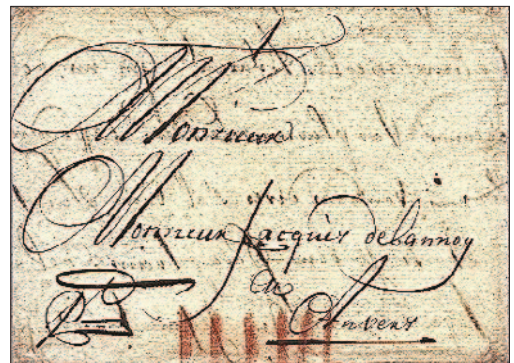 Monsieur
Monsieur Jacques delannoy
a
Anvers